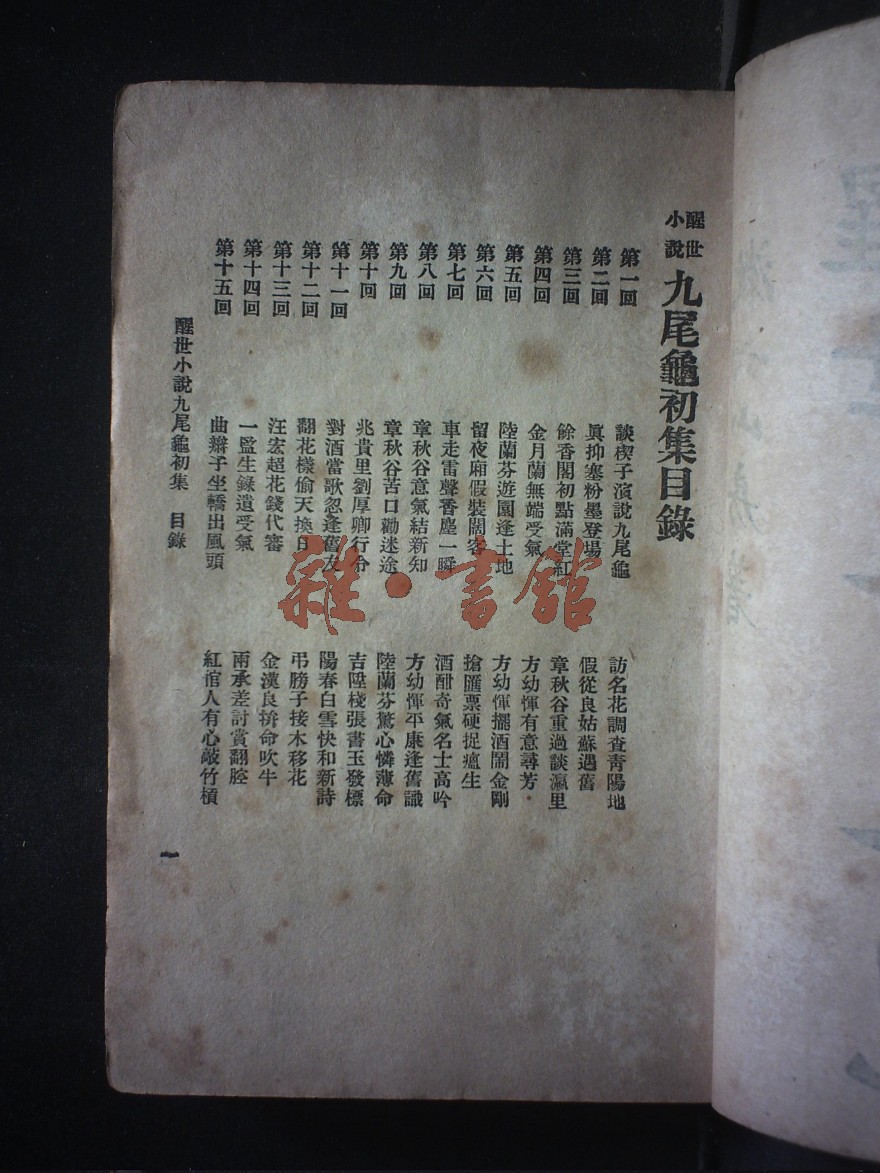 醒世小說 九尾龜初集目錄
第一回 談楔子演說九尾龜 訪名花調查靑陽地
第二回 眞抑塞粉墨登場 假從良姑蘇遇舊
第三回 餘香閣初點滿堂紅 章秋谷重過談瀛里
第四回 金月蘭無端受氣 方幼惲有意尋芳
第五回 陸蘭芬遊園逢土地 方幼惲擺酒鬧金剛
第六回 留夜廂假裝闊客 搶匯票硬捉瘟生
第七回 車走雷聲香塵一瞬 酒酣奇氣名士高吟
第八回 章秋谷意氣結新知 方幼惲平康逢舊識
第九回 章秋谷苦口勸迷途 陸蘭芬驚心憐薄命
第十回 兆貴里劉厚卿行令 吉陞棧張書玉發標
第十一回 對酒當歌忽逢舊友 陽春白雪快和新詩
第十二回 翻花樣偷天換日 弔膀子接木移花
第十三回 汪宏超花錢代審 金漢良拚命吹牛
第十四回 一監生錄遺受氣 兩承差討賞翻腔
第十五回 曲辮子坐轎出風頭 紅倌人有心敲竹槓
醒世小說九尾龜初集 目錄
一
雜·書館